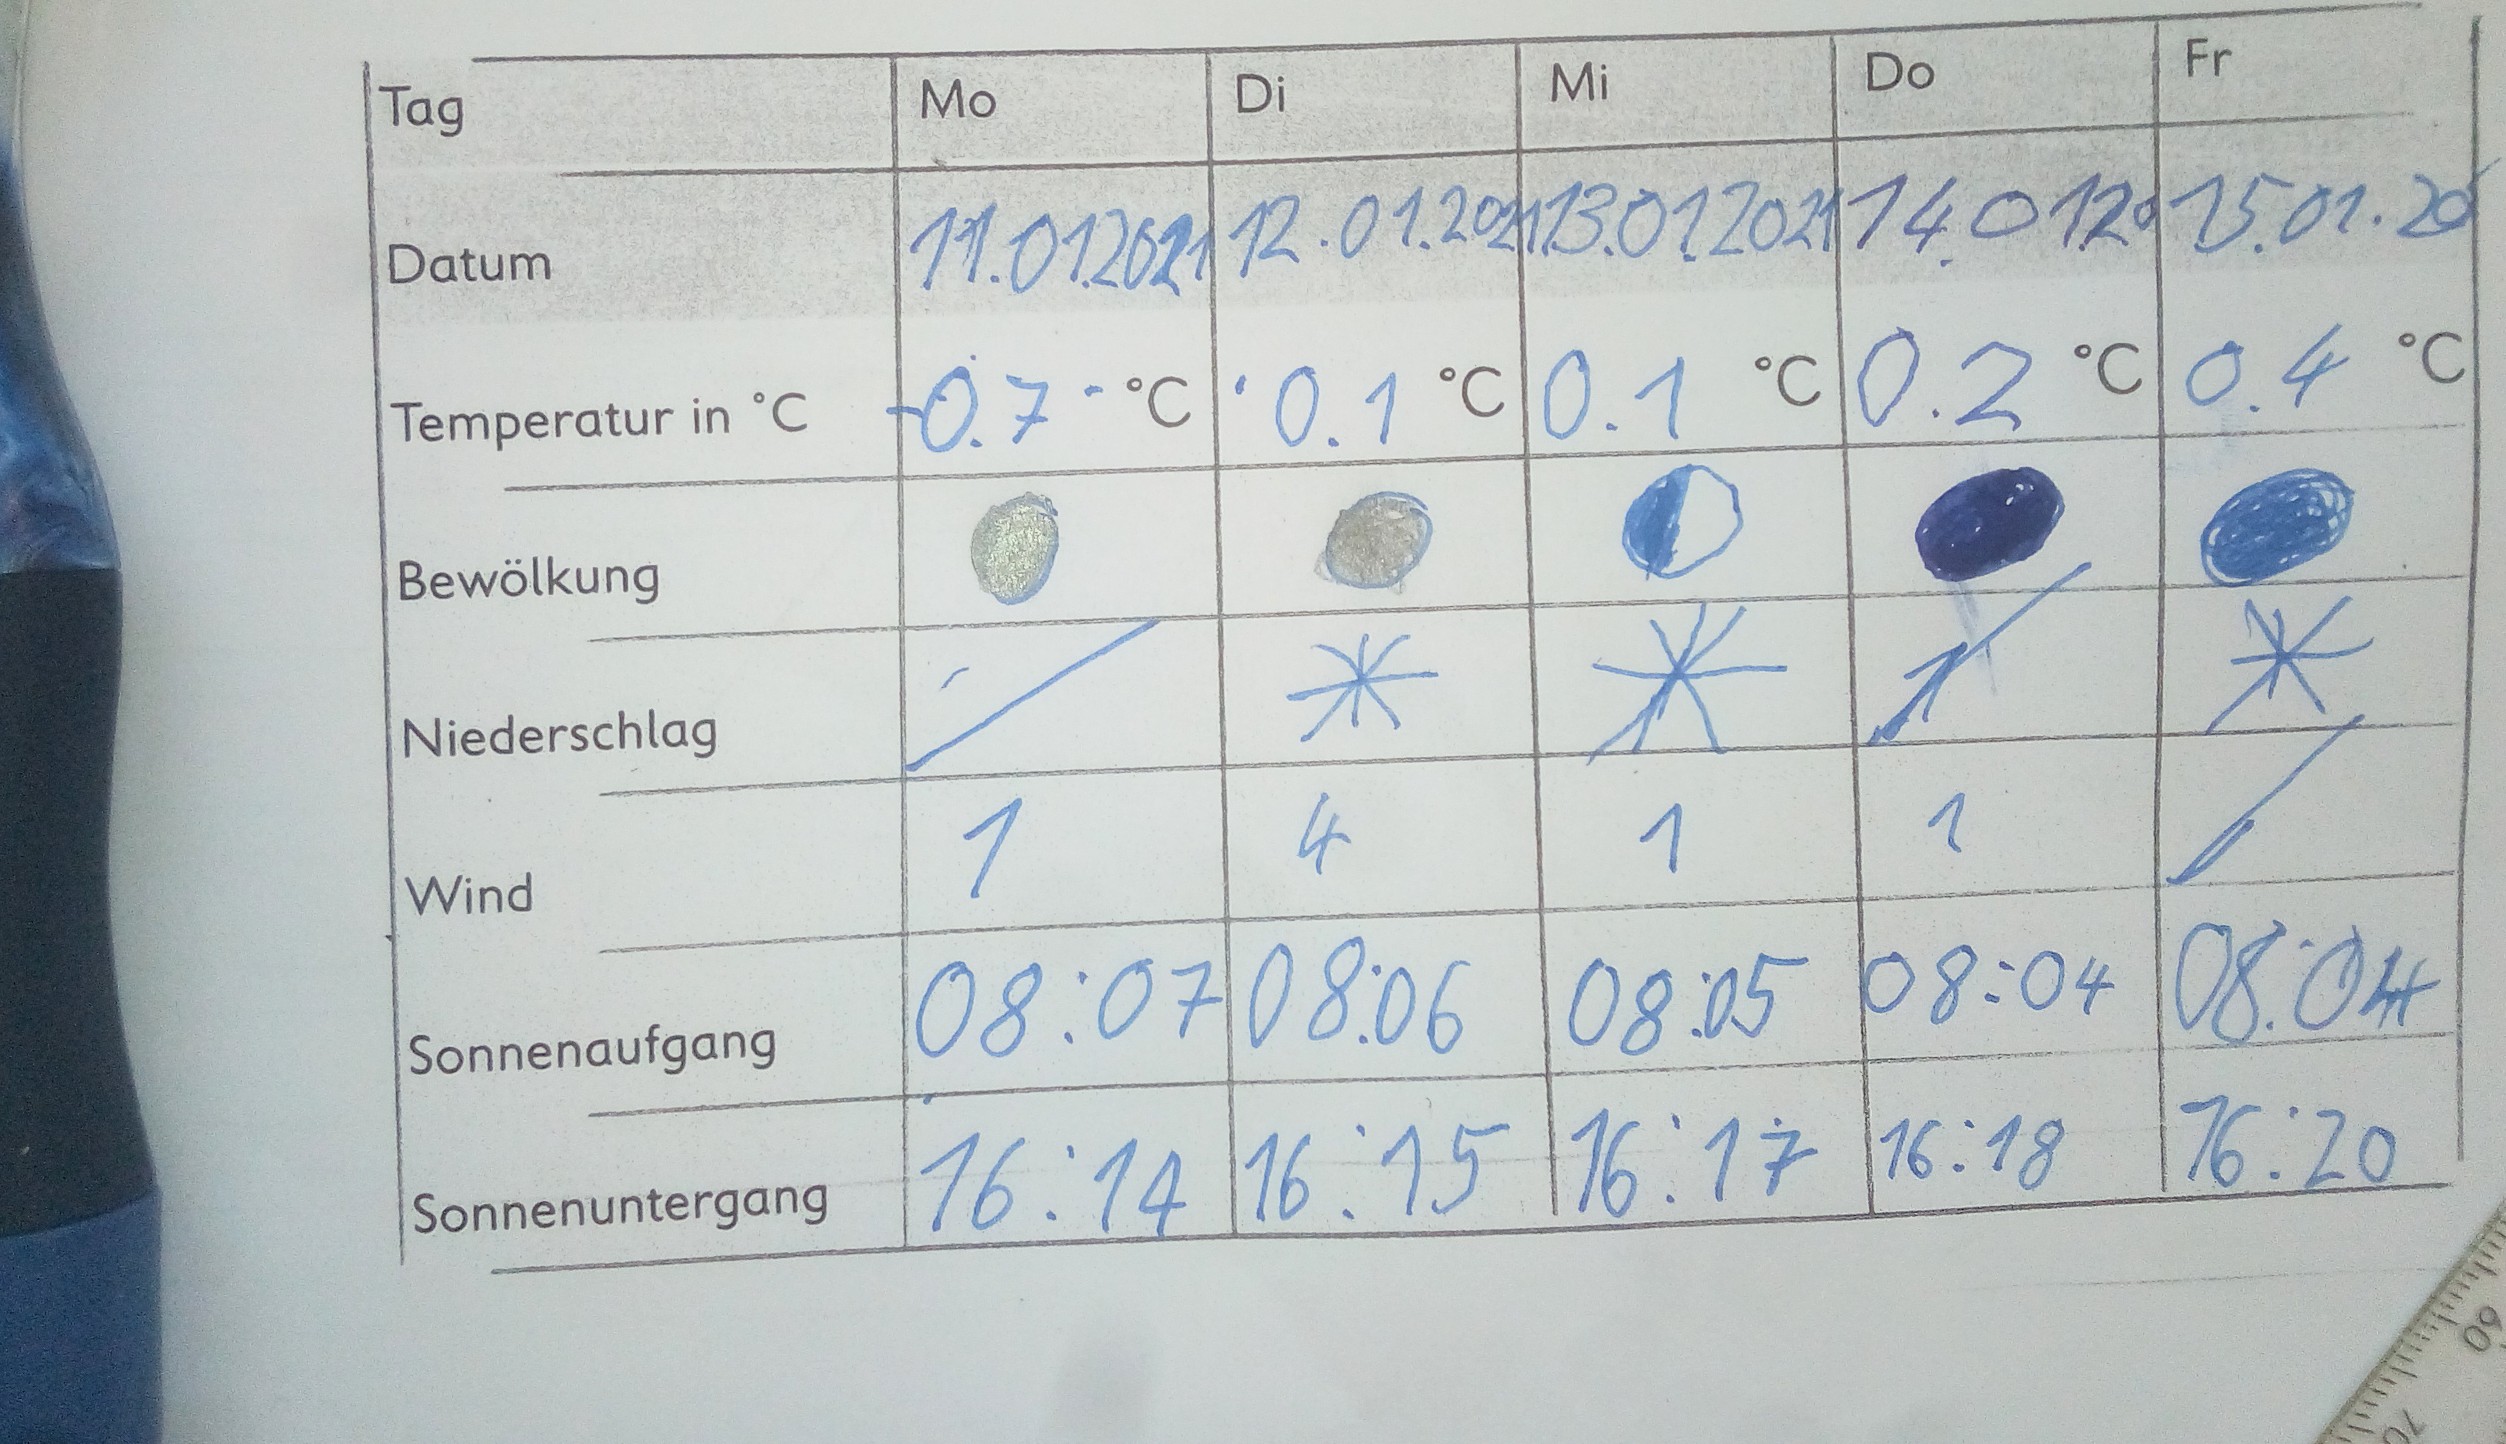 Tag Mo Di Mi Do Fr
Datum 11.01.2021 12.01.2021 13.01.2021 14.01.20 15.01.20
Temperatur in °C -0.7 °C 0.1 °C 0.1 °C 0.2 °C 0.4 °C
Bewölkung
Niederschlag
Wind 1 4 1 1
Sonnenaufgang 08:07 08:06 08:05 08:04 08:04
Sonnenuntergang 16:14 16:15 16:17 16:18 16:20
60
70